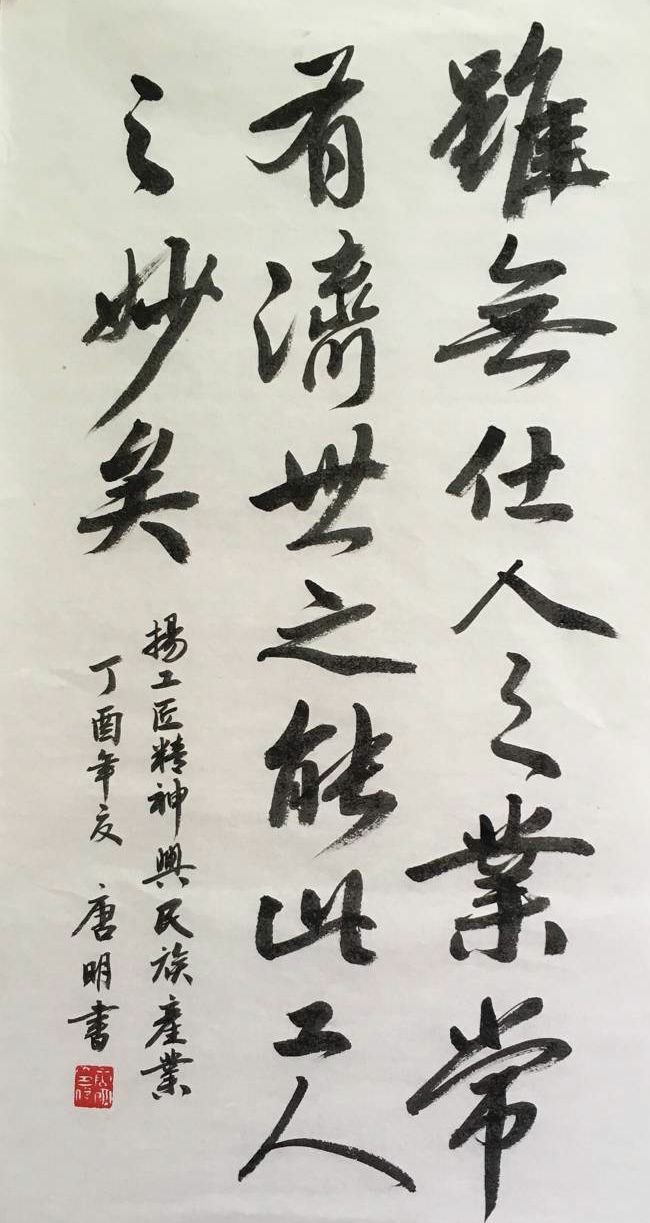 雖無仕人之業常
有濟世之能此工人
之妙矣
揚工匠精神興民族產業
丁酉年夏 唐明書